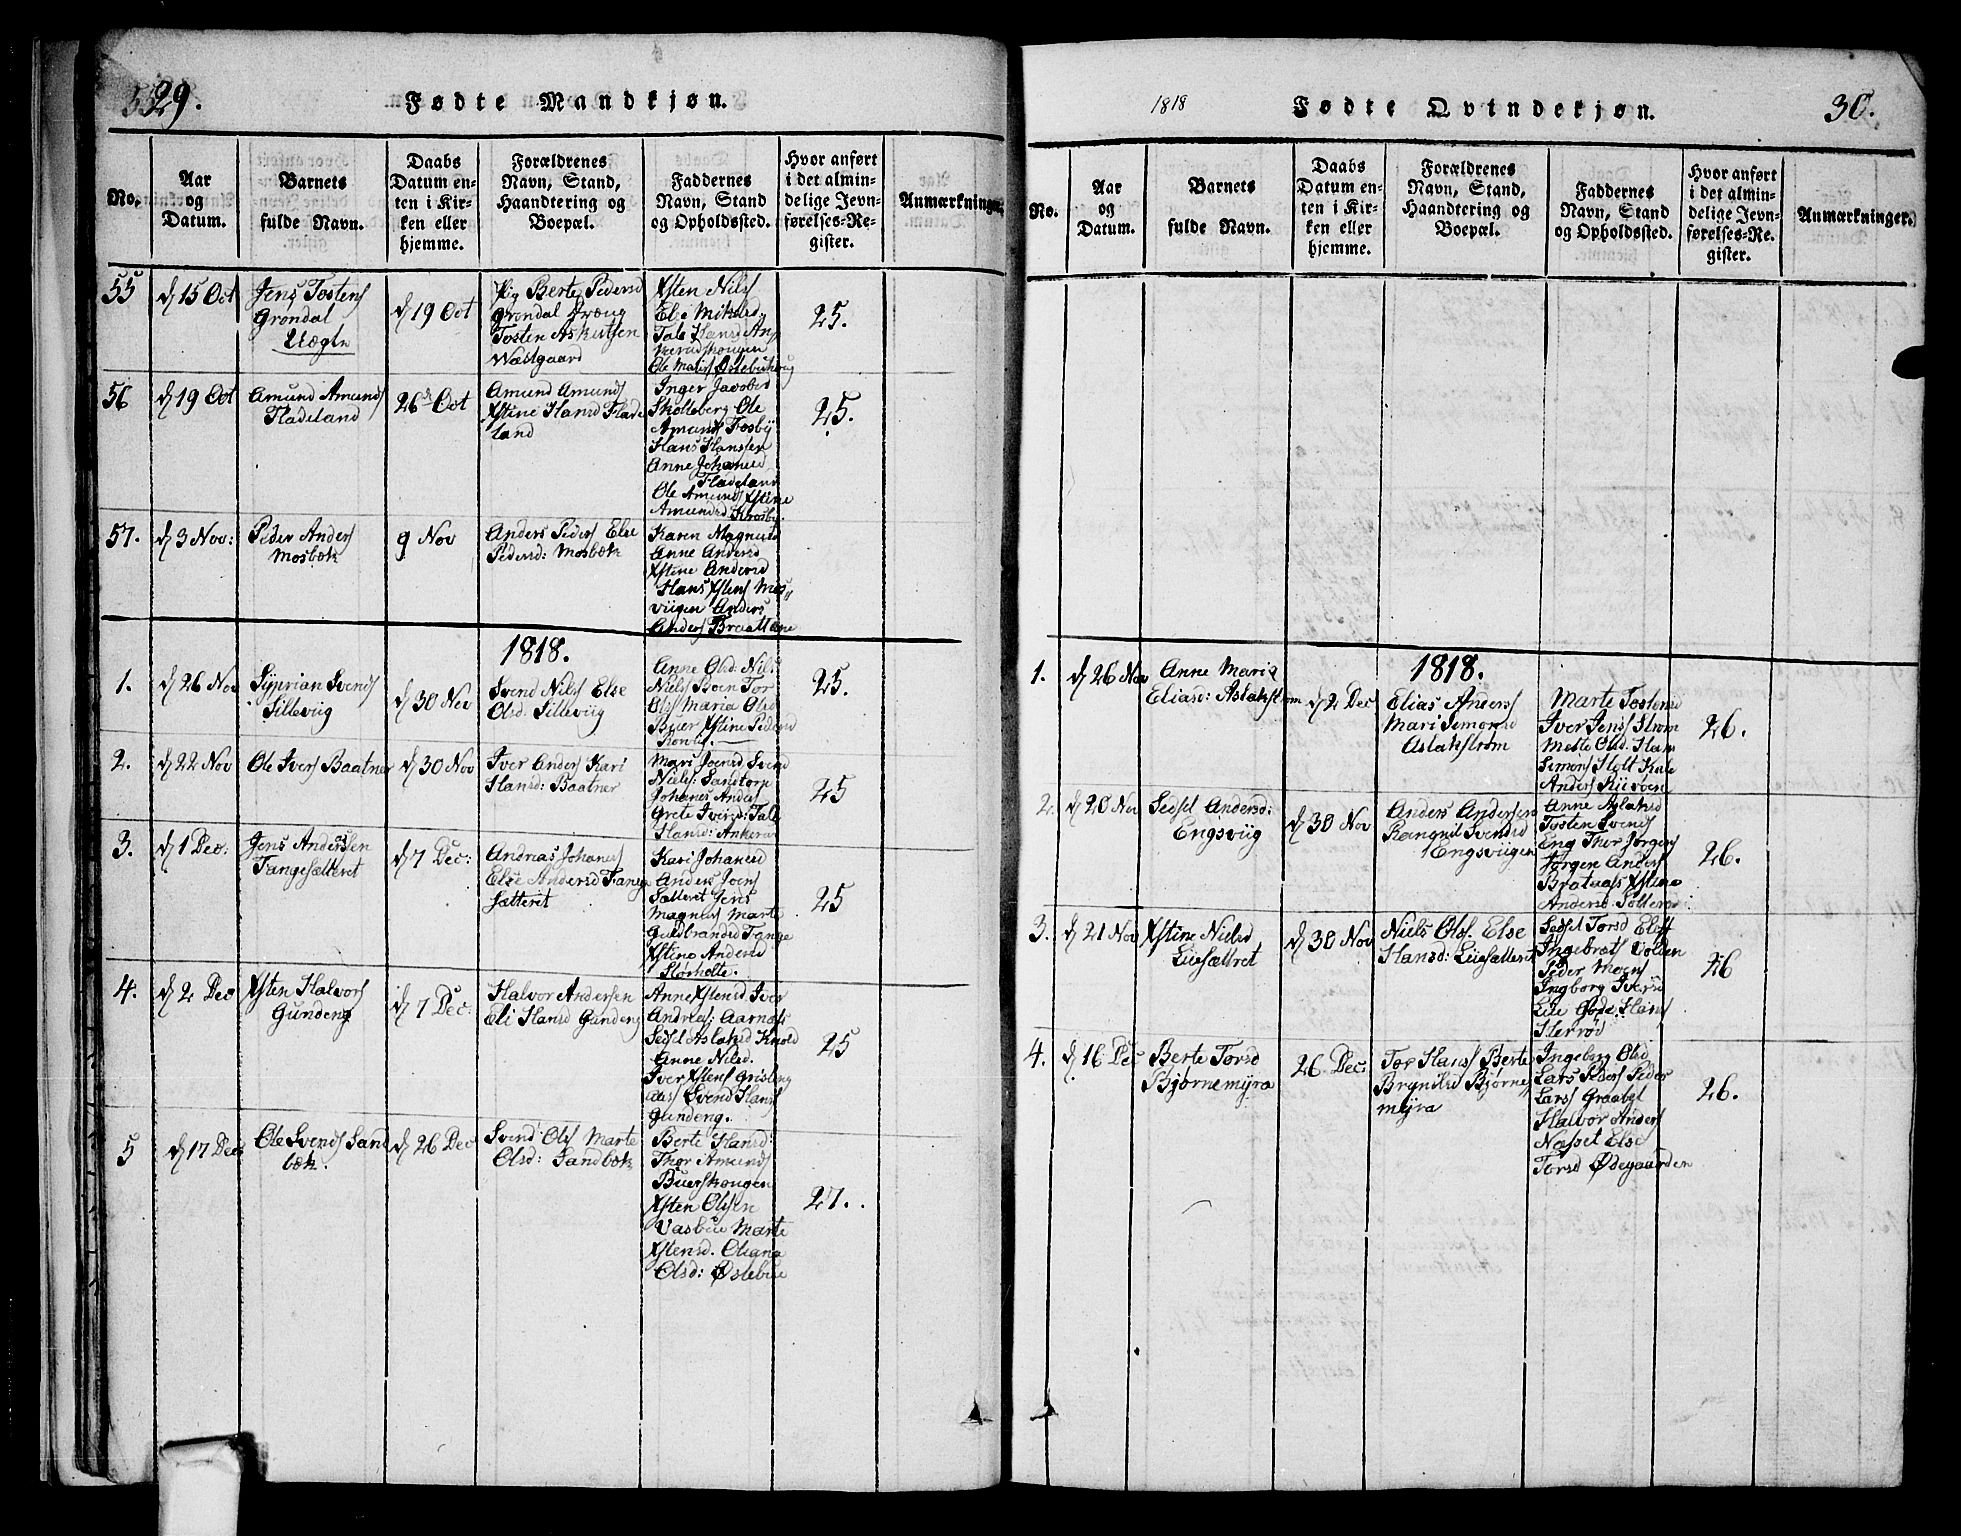 29.
Fødte Mandkjøn.
No.
Aar
og
Datum.
Barnets
fulde Navn.
Daabs
Datum en-
ten i Kir-
ken eller
hjemme.
Forældrenes
Navn, Stand,
Haandtering og
Boepæl.
Faddernes
Navn, Stand
og Opholdssted.
Hvor anført
i det almin-
delige Jevn-
førelses-Re-
gister.
Anmærkninger.
55
d 15 Oct
Jens Tostens
Grøndal
Uægte
d 19 Oct
Pig Berte Pedersd
Grøndal Dræng
Tosten Askutsen
Wæstgaard
Xsten Nils
Eli Mikelsd
Tale Hansd An
Ole Mats Øslebuhoug
25.
56
d 19 Oct
Amund Amunds
Fladeland
26 Oct
Amund Amunds
Xstine Hansd Flade
land
Inger Jacobsd
Skolleberg Ole
Amunds Fosby
Hans Hansten
Anne Johansd
Fladeland
Ole Amunds Xstine
Amundsd Krosby
25.
57.
d 3 Nov:
Peder Anders
Mosbæk
9 Nov
Anders Peders Else
Pedersd: Mosbæk
Karen Magnusd
Anne Andersd
Xstine Andersd
Hans Xstens Mos
viigen Anders
Anders Braattene
1818.
1.
d 26 Nov
Syprian Svends
Sillevig
d 30 Nov
Svend Nils Else
Olsd. Sillevig
Anne Olsd: Nils
Niels Boen Tor
Ols Maria Olsd
Buer Xstine Pedersd
25.
2.
d 22 Nov
Ole Ivers Baatner
d 30 Nov
Iver Anders Kari
Hansd: Baatner
Mari Joensd Svend
Niels: Sandtorp
Johanes Anders
Grete Iversd: Tale
Hansd: Ankerø
25
3.
d 1 Dec:
Jens Andersen
Tangesætteret
d 7 Dec:
Andreas Johanes
Else Andersd Tange
sætteret
Kari Johansd
Anders Joens
Sætteret Jens
Magnus Marte
Guldbrandsd Tange
Xstine Andersd
Storholte.
25
4.
d 2 Dec
Xsten Halvors
Gundeng
d 7 Dec:
Halvor Andersen
Eli Hansd Gundeng
Anne Xstensd Iver
Andreas: Aarnæs
Sedsel Aslaksd Knold
Anne Nilsd.
Iver Xstens Grisleng
aas Svend Hans
Gundeng.
25
5
d 17 Dec
Ole Svends Sand
bæk.
d 26 Dec
Svend Ols Marte
Olsd: Sandbæk
Berte Hansd:
Thor Amunds
Buerskougen
Xsten Olsen
Vasbue Marte
Xstensd. Oliana
Olsd: Øslebue
27.
1818
Fødte Qvindekjøn.
30.
No.
Aar
og
Datum.
Barnets
fulde Navn.
Daabs
Datum en-
ten i Kir-
ken eller
hjemme.
Forældrenes
Navn, Stand,
Haandtering og
Boepæl.
Faddernes
Navn, Stand
og Opholdssted.
Hvor anført
i det almin-
delige Jevn-
førelses-Re-
gister.
Anmærkninger.
1818.
1.
d 26 Nov
Anne Maria
Eliasd: Aslakstrøm
d 2 Dec
Elias Anders
Mari Semonsd
Aslakstrøm
Marte Tostensd
Iver Jens Strøm
Mette Olsd. Hans
Semons Holt Kale
Anders Riisveen
26.
2.
d 20 Nov
Sedsel Andersd:
Engsviig
d 30 Nov
Anders Andersen
Raenald Svendsd
Engsviigen
Anne Aslaksd
Tosten Svends
Eng Thor Jørgens
Jørgen Anders
Brataas Xstine
Andersd. Solterø
26.
3.
d 21 Nov
Xstine Nielsd
Liesættret
d 30 Nov
Niels Ols. Else
Hansd: Liesætteret
Sedsel Torsd Elist
Ingebrets Volden
Peder Mogns
Ingborg Iversd
Lie Gude Hans
Herrød
26
4.
d 16 Dec
Berte Torsd
Bjørnemyra
26 Dec:
Tor Hans Berte
Brynilsd Bjørne
myra
Ingeborg Olsd
Lars Peders Peder
Lars Graabøl
Halvor Anders
Næsset Else
Torsd Ødegaarden
26.